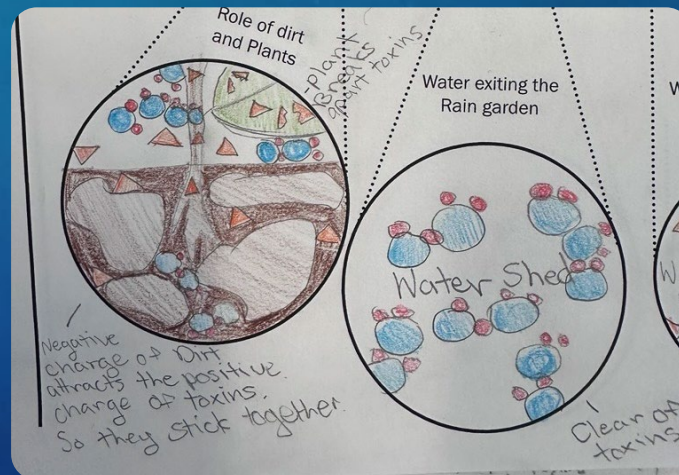 Role of dirt
and Plants
-Plant
Breaks
apart toxins
Water exiting the
Rain garden
W
Water Shed
W
Negative
charge of Dirt
attracts the positive
charge of toxins.
So they stick together.
Clear of
toxins